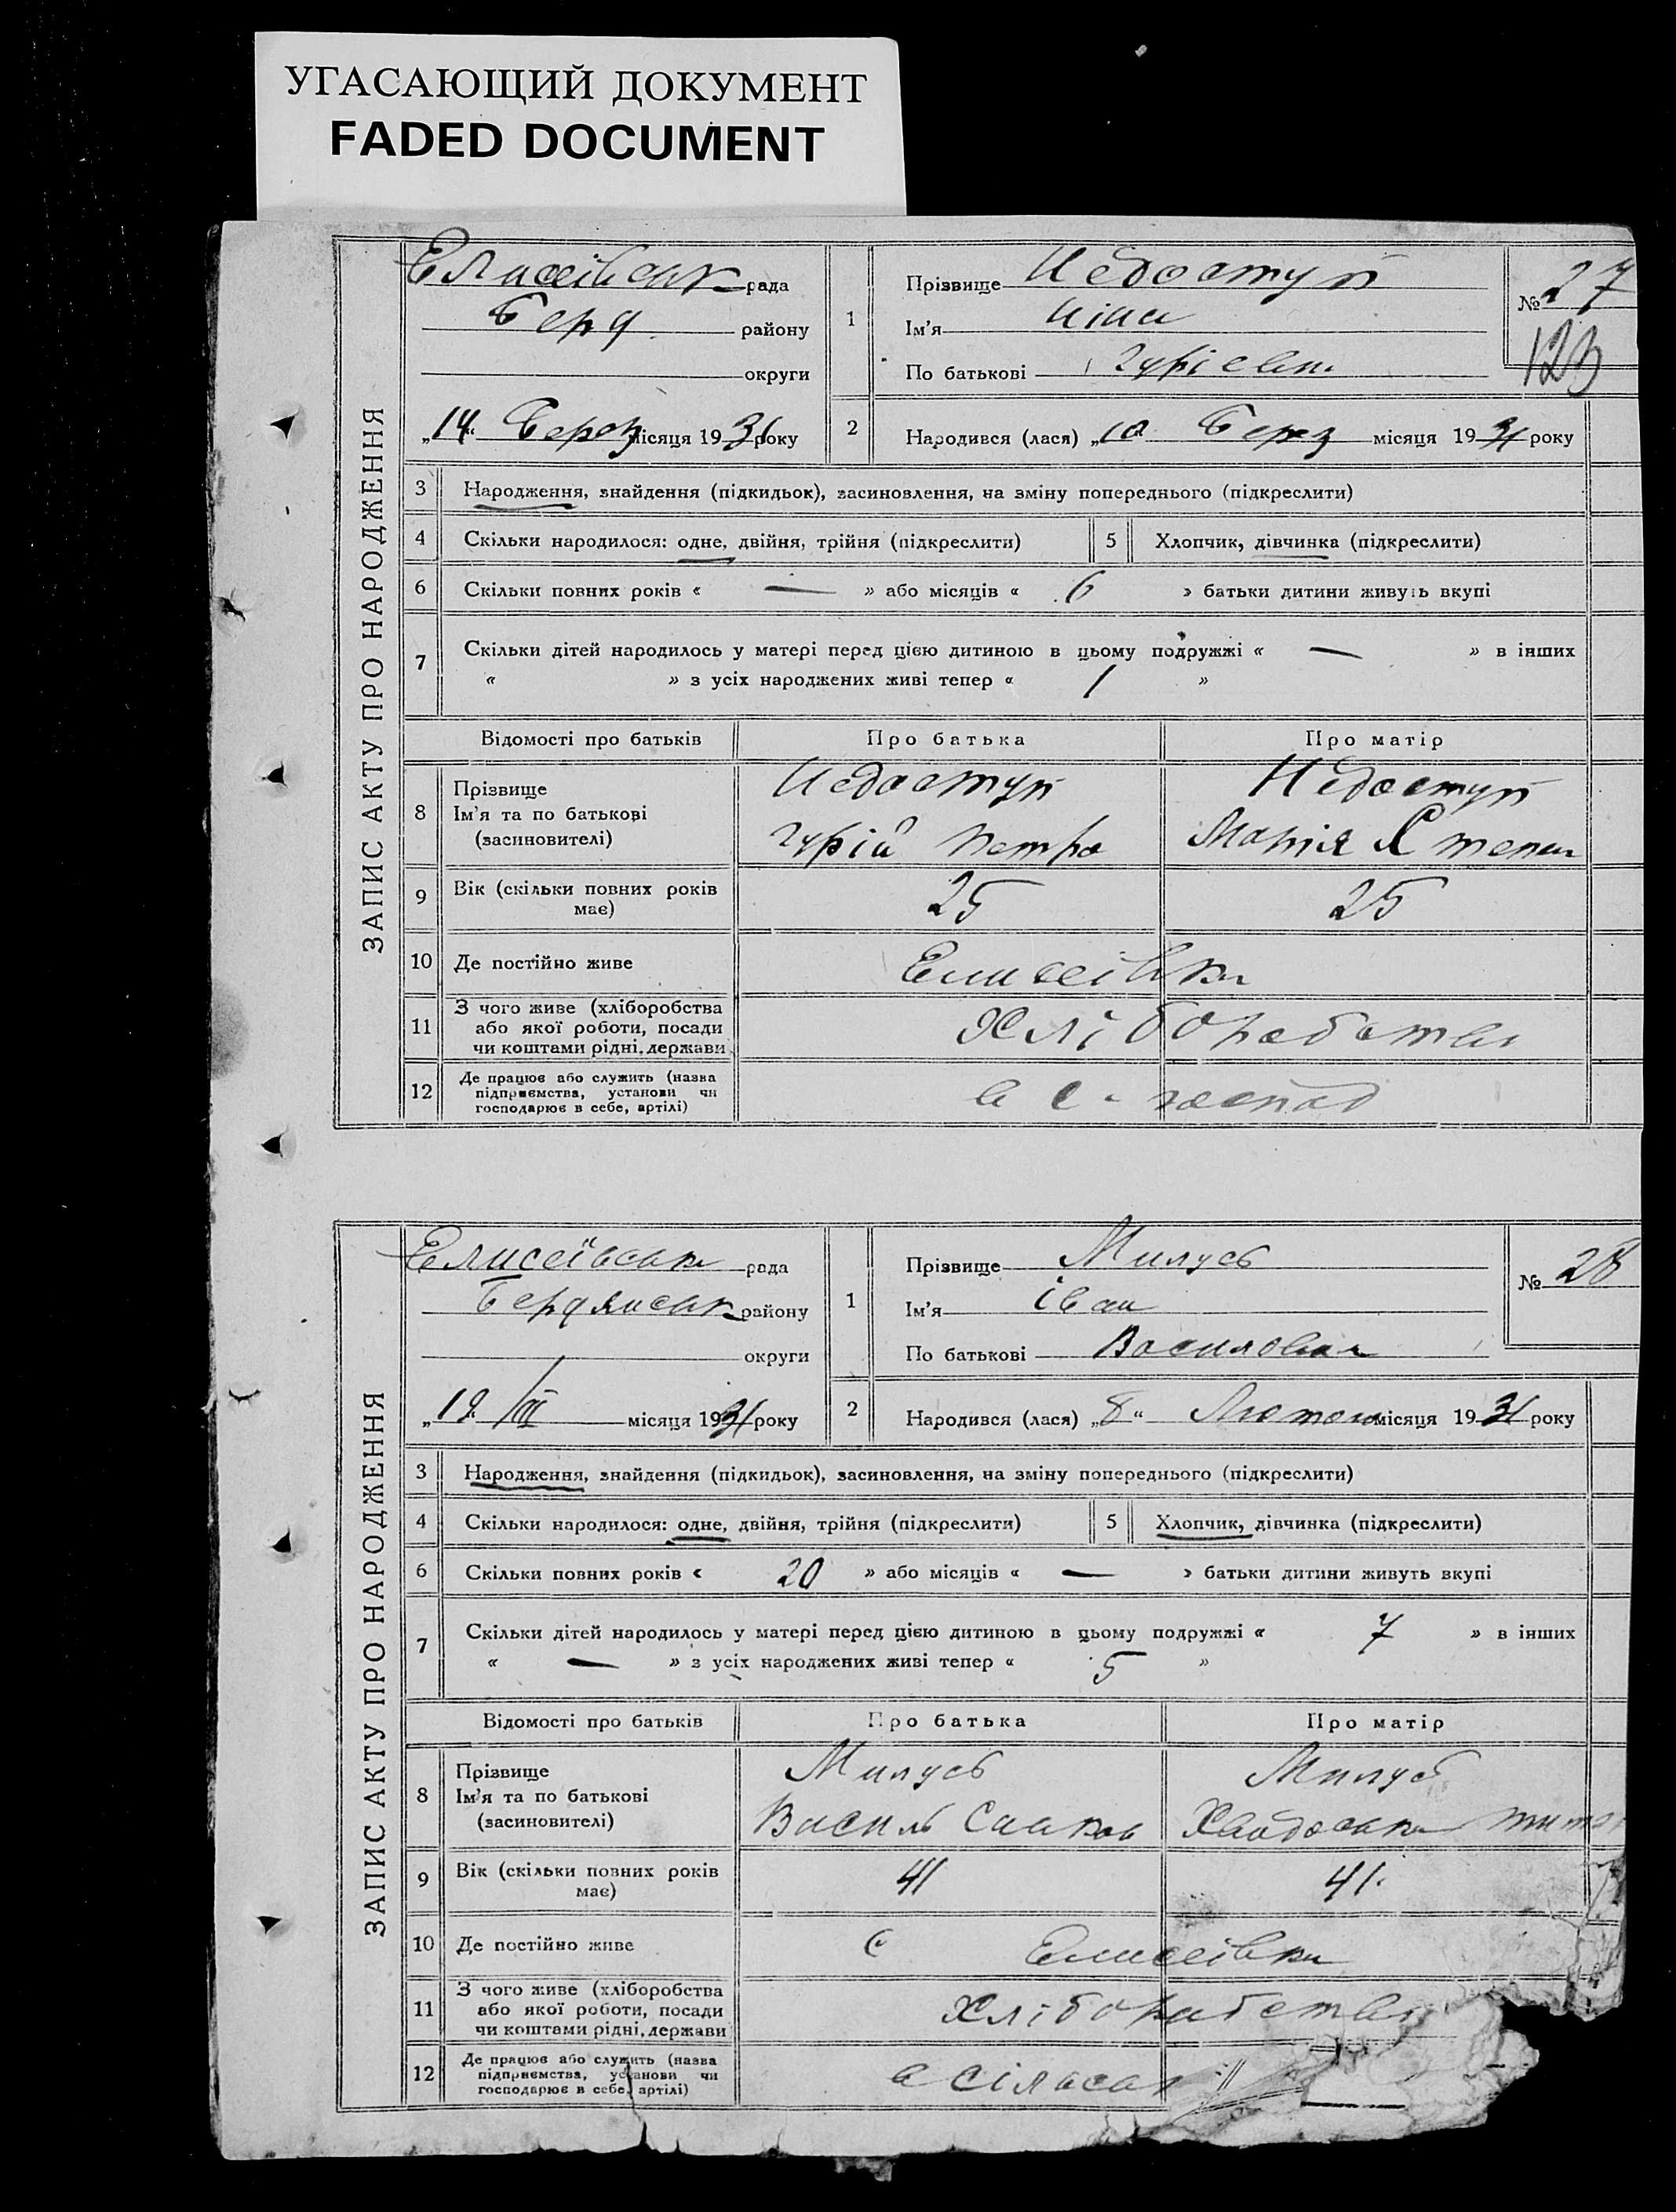 УГАСАЮЩИЙ ДОКУМЕНТ
FADED DOCUMENT
ЗАПИС АКТУ ПРО НАРОДЖЕННЯ
Елисеівськ рада
Берд району
округи
„14“ Берез місяця 1931 року
1 Прізвище Недоступ
Ім'я Ніна
По батькові Гурієвна
№ 27
123
2 Народився (лася) „10“ Берез місяця 1931 року
3 Народження, знайдення (підкидьок), засиновлення, на зміну попереднього (підкреслити)
4 Скільки народилося: одне, двійня, трійня (підкреслити) 5 Хлопчик, дівчинка (підкреслити)
6 Скільки повних років « — » або місяців « 6 » батьки дитини живуть вкупі
7 Скільки дітей народилось у матері перед цією дитиною в цьому подружжі « — » в інших
« » з усіх народжених живі тепер « 1 »
Відомості про батьків Про батька Про матір
8 Прізвище Недоступ Недоступ
Ім'я та по батькові Гурій Петро Марія Степан
(засиновителі)
9 Вік (скільки повних років має) 25 25
10 Де постійно живе Елисеівка
11 З чого живе (хліборобства
або якої роботи, посади
чи коштами рідні, держави Хліборобства
12 Де працює або служить (назва
підприємства, установи чи
господарює в себе, артілі) в с-господ
ЗАПИС АКТУ ПРО НАРОДЖЕННЯ
Елисеївськ рада
Бердянськ району
округи
„19 /III місяця 1931 року
1 Прізвище Милусь
Ім'я Іван
По батькові Василович
№ 28
2 Народився (лася) „8“ Лютого місяця 1931 року
3 Народження, знайдення (підкидьок), засиновлення, на зміну попереднього (підкреслити)
4 Скільки народилося: одне, двійня, трійня (підкреслити) 5 Хлопчик, дівчинка (підкреслити)
6 Скільки повних років « 20 » або місяців « — » батьки дитини живуть вкупі
7 Скільки дітей народилось у матері перед цією дитиною в цьому подружжі « 7 » в інших
« — » з усіх народжених живі тепер « 5 »
Відомості про батьків Про батька Про матір
8 Прізвище Милусь Милусь
Ім'я та по батькові Василь
(засиновителі)
9 Вік (скільки повних років має) 41 41.
10 Де постійно живе с Елисеівка
11 З чого живе (хліборобства
або якої роботи, посади
чи коштами рідні, держави Хліборобства
12 Де працює або служить (назва
підприємства, установи чи
господарює в себе, артілі) в